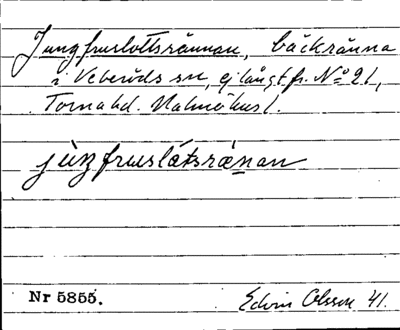 Jungfruslottsrännan, bäckränna
i Veberöds sn, ej långt fr. No 21,
Torna hd. Malmöhus l.
jùŋfruslåtsrän̲an
Nr 5855.
Edvin Olsson 41.